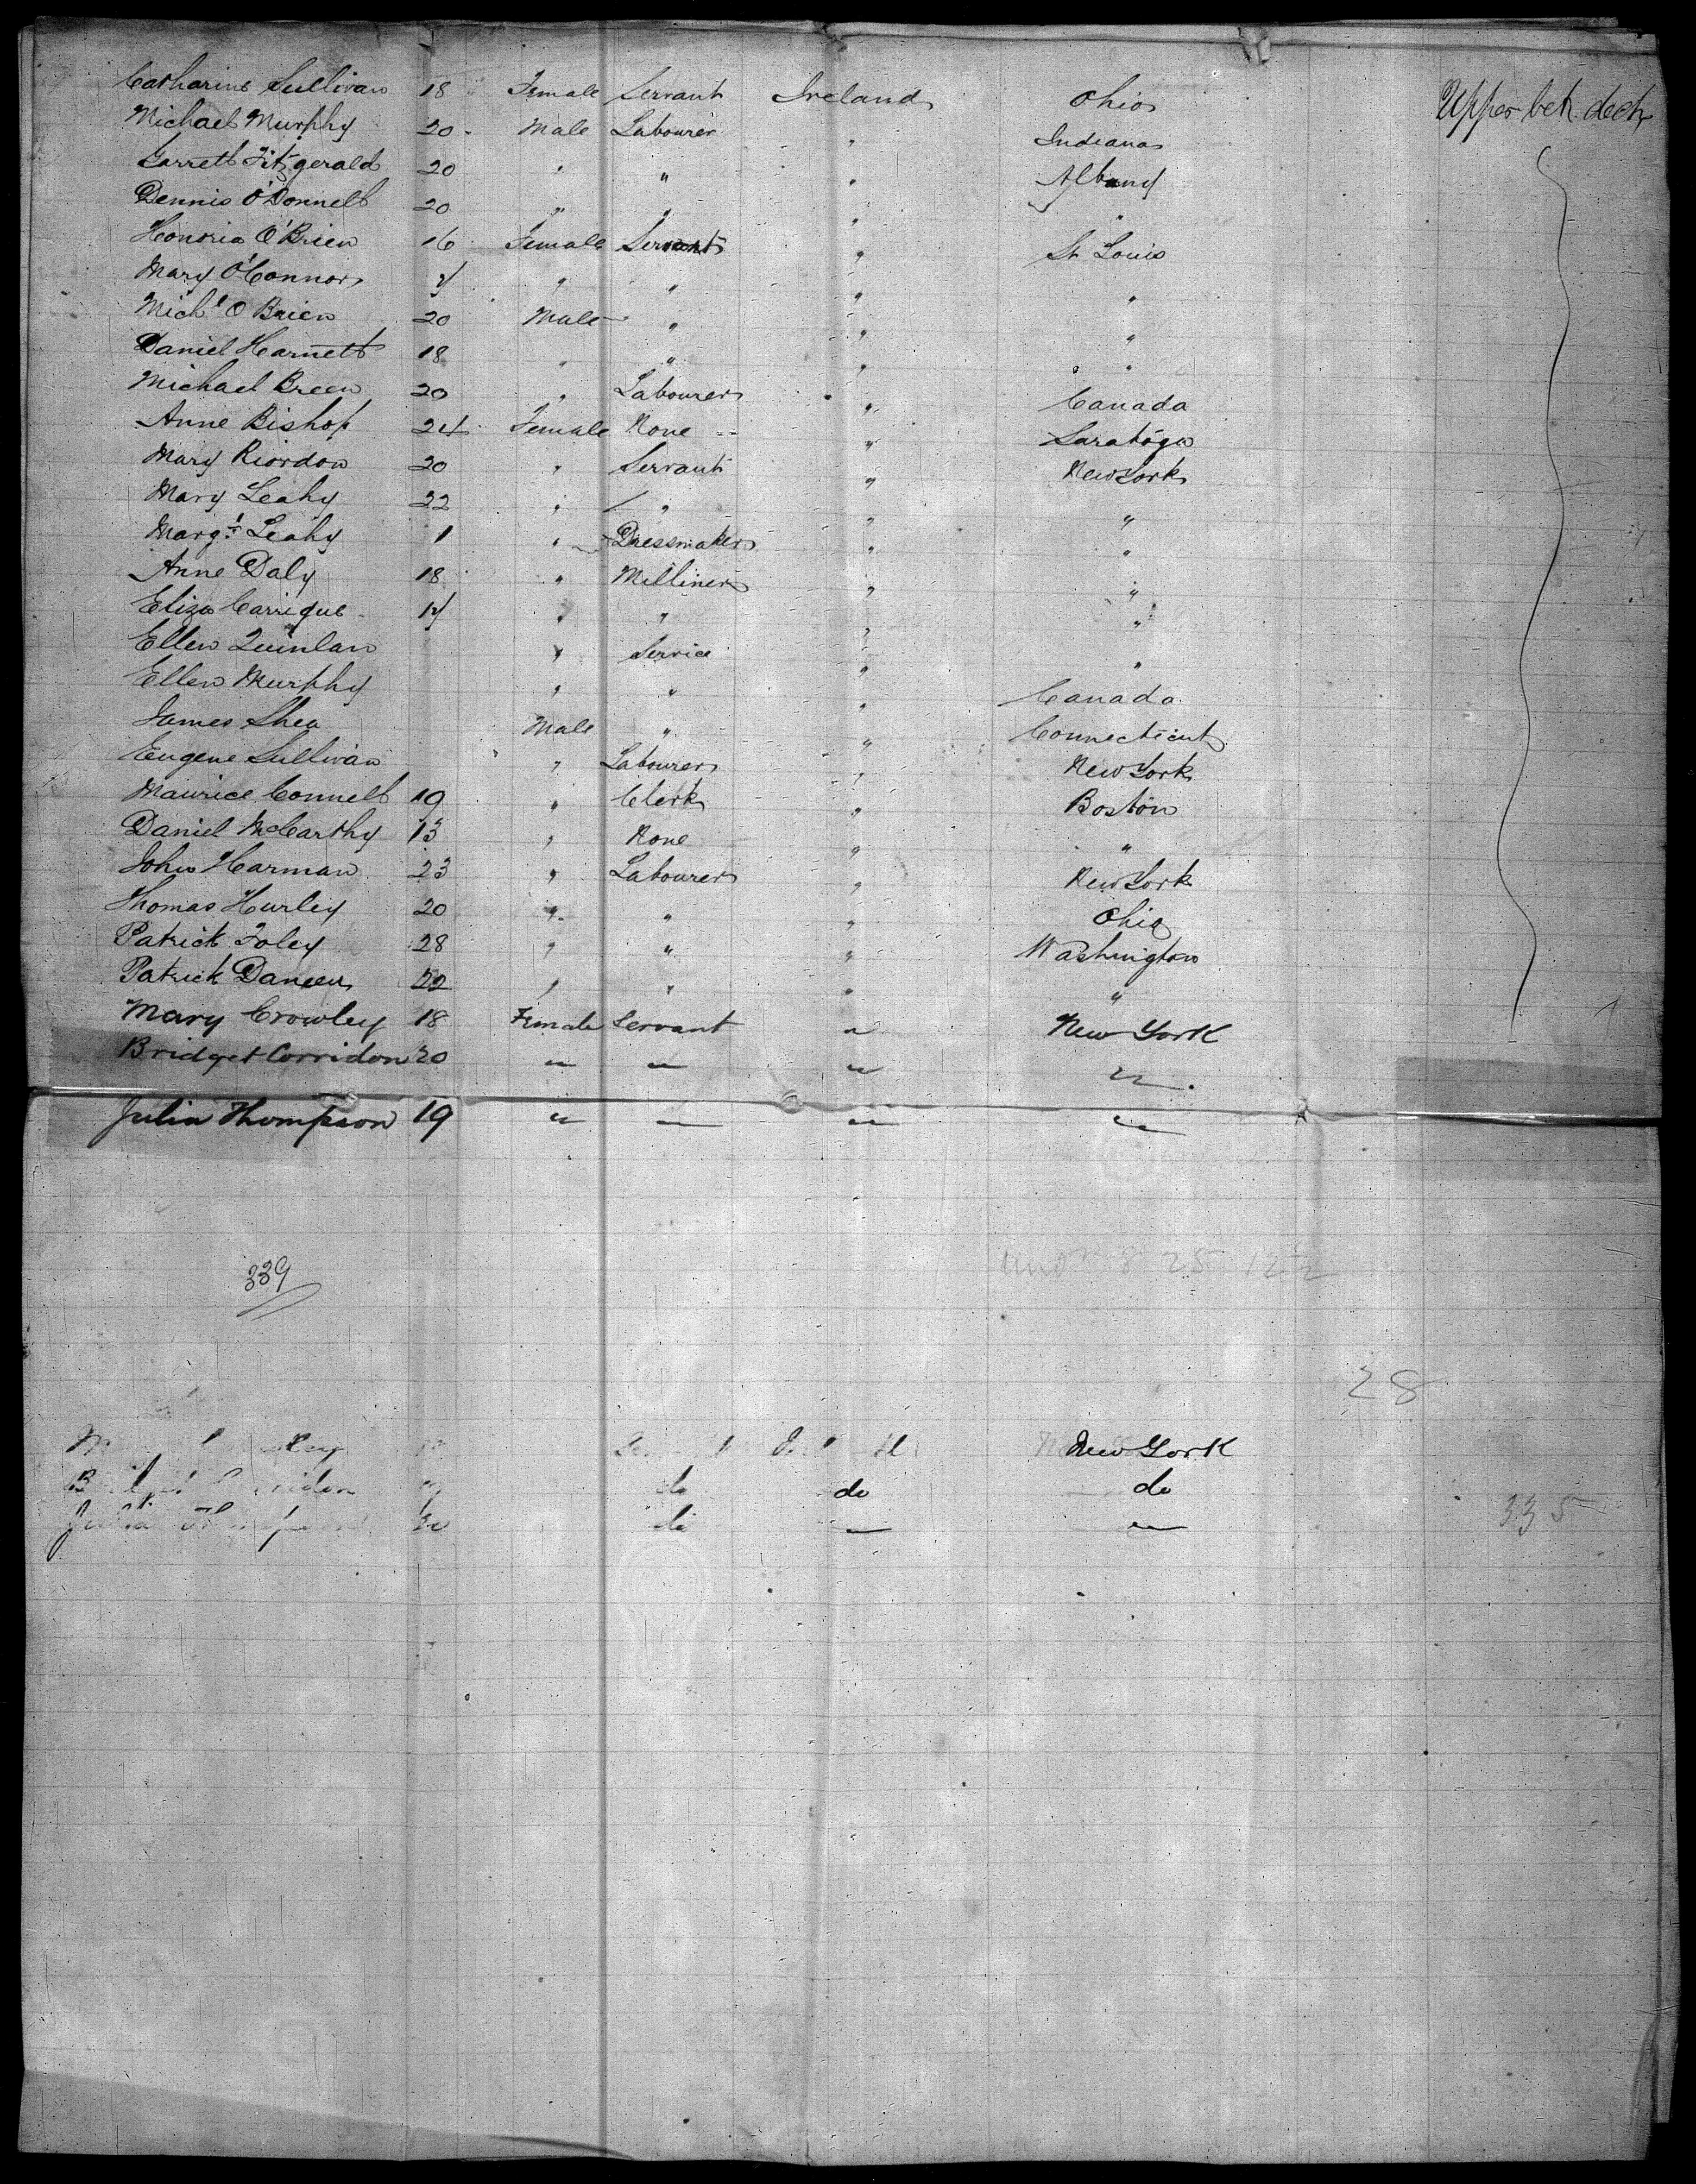 Catharine Sullivan 18 " Female Servant Ireland Ohio Upper bet. deck
Michael Murphy 20 - Male Labourer " Indiana
Garrett Fitzgerald 20 " " " Albany
Dennis O'Donnell 20 " " " "
Honoria O'Brien 16 Female Servant " St Louis
Mary O'Connor " " " "
Mich.l O Brien 20 Male " " "
Daniel Harnett 18 " " " "
Michael Breen 20 " Labourer " Canada
Anne Bishop 24 Female None " Saratoga
Mary Riordon 20 " Servant " New York
Mary Leahy 22 " " " "
Marg.t Leahy 1 " Dressmaker " "
Anne Daly 18 " Milliner " "
Eliza Carrique " " " "
Ellen Quinlan " Service " "
Ellen Murphy " " " Canada
James Shea Male " " Connecticut
Eugene Sullivan " Labourer " New York
Maurice Connell 19 " Clerk " Boston
Daniel McCarthy 13 " None " "
John Harman 23 " Labourer " New York
Thomas Hurley 20 " " " Ohio
Patrick Foley 28 " " " Washington
Patrick 22 " " " "
Mary Crowley 18 Female Servant " New York
Bridget Corridon 20 " " " "
Julia Thompson 19 " " " "
339
8 25 122
28
New York
do do do
Julia do " "
335